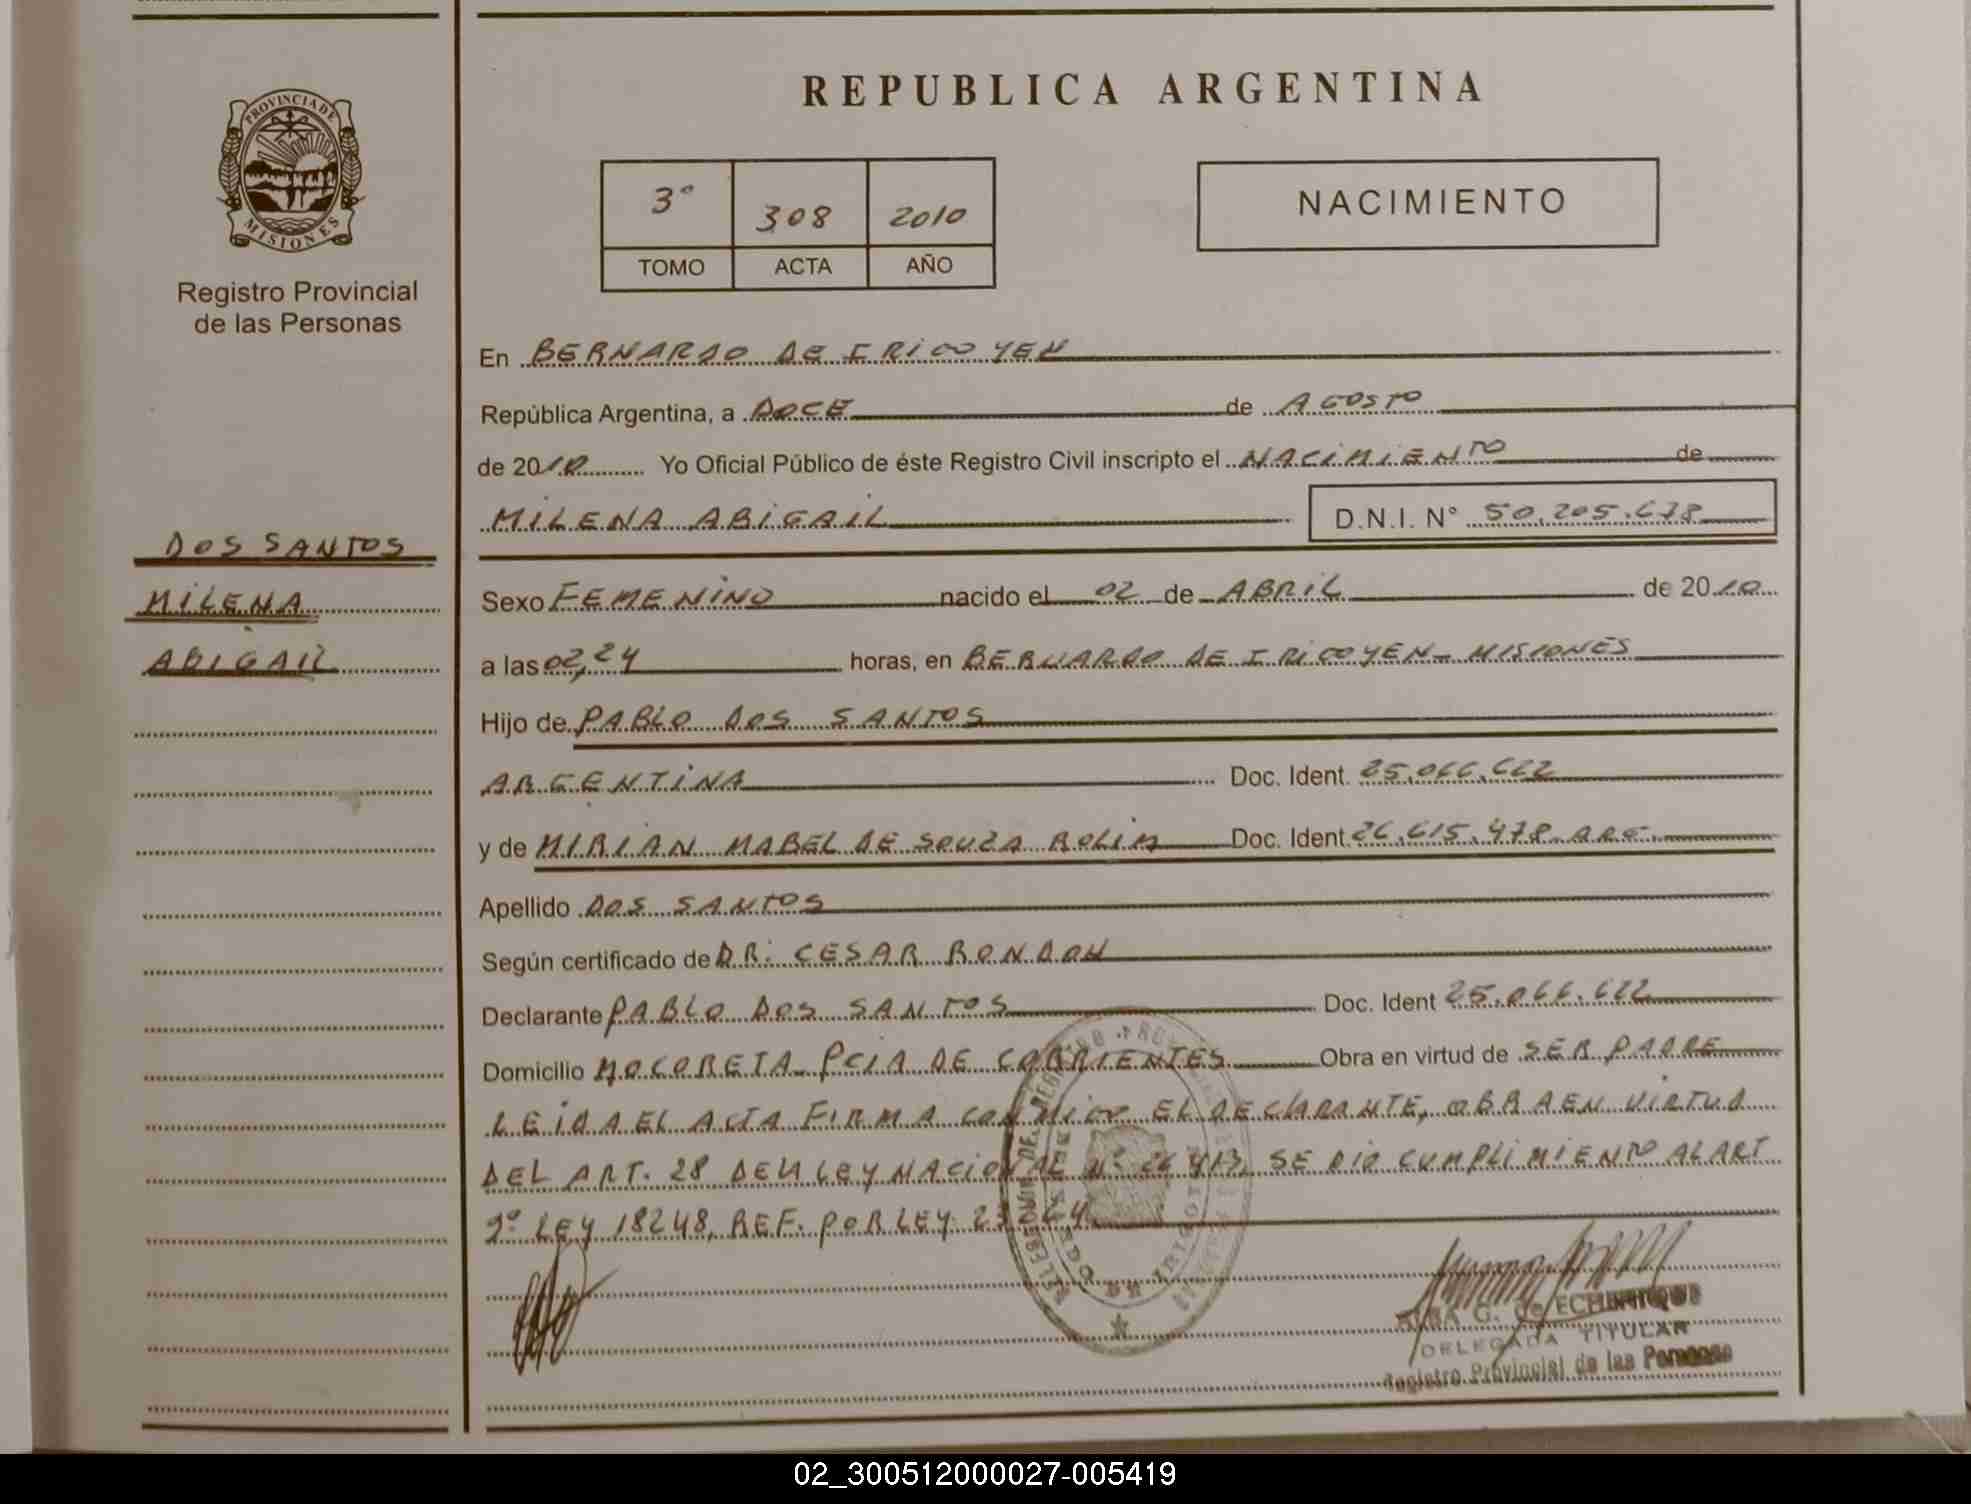 REPUBLICA ARGENTINA
PROVINCIA DE
MISIONES
Registro Provincial
de las Personas
3° 308 2010
TOMO ACTA AÑO
NACIMIENTO
En BERNARDO DE IRIGOYEN
República Argentina, a DOCE de AGOSTO
de 2010 Yo Oficial Público de éste Registro Civil inscripto el NACIMIENTO de
MILENA ABIGAIL D.N.I. N° 50.205.678
DOS SANTOS
MILENA
ABIGAIL
Sexo FEMENINO nacido el 02 de ABRIL de 2010
a las 02,24 horas, en BERNARDO DE IRIGOYEN - MISIONES
Hijo de PABLO DOS SANTOS
ARGENTINA Doc. Ident. 25.066.622
y de MIRIAN MABEL DE SOUZA ROLIM Doc. Ident. 26.615.478 ARG.
Apellido DOS SANTOS
Según certificado de DR. CESAR RONDON
Declarante PABLO DOS SANTOS Doc. Ident 25.066.622
Domicilio MOCORETA - PCIA DE CORRIENTES Obra en virtud de SER PADRE
LEIDA EL ACTA FIRMA CONMIGO EL DECLARANTE, OBRA EN VIRTUD
DEL ART. 28 DE LA LEY NACIONAL N° 26413, SE DIO CUMPLIMIENTO AL ART
9° LEY 18248, REF. POR LEY 23264
ALBA G. de ECHENIQUE
DELEGADA TITULAR
Registro Provincial de las Personas
02_300512000027-005419